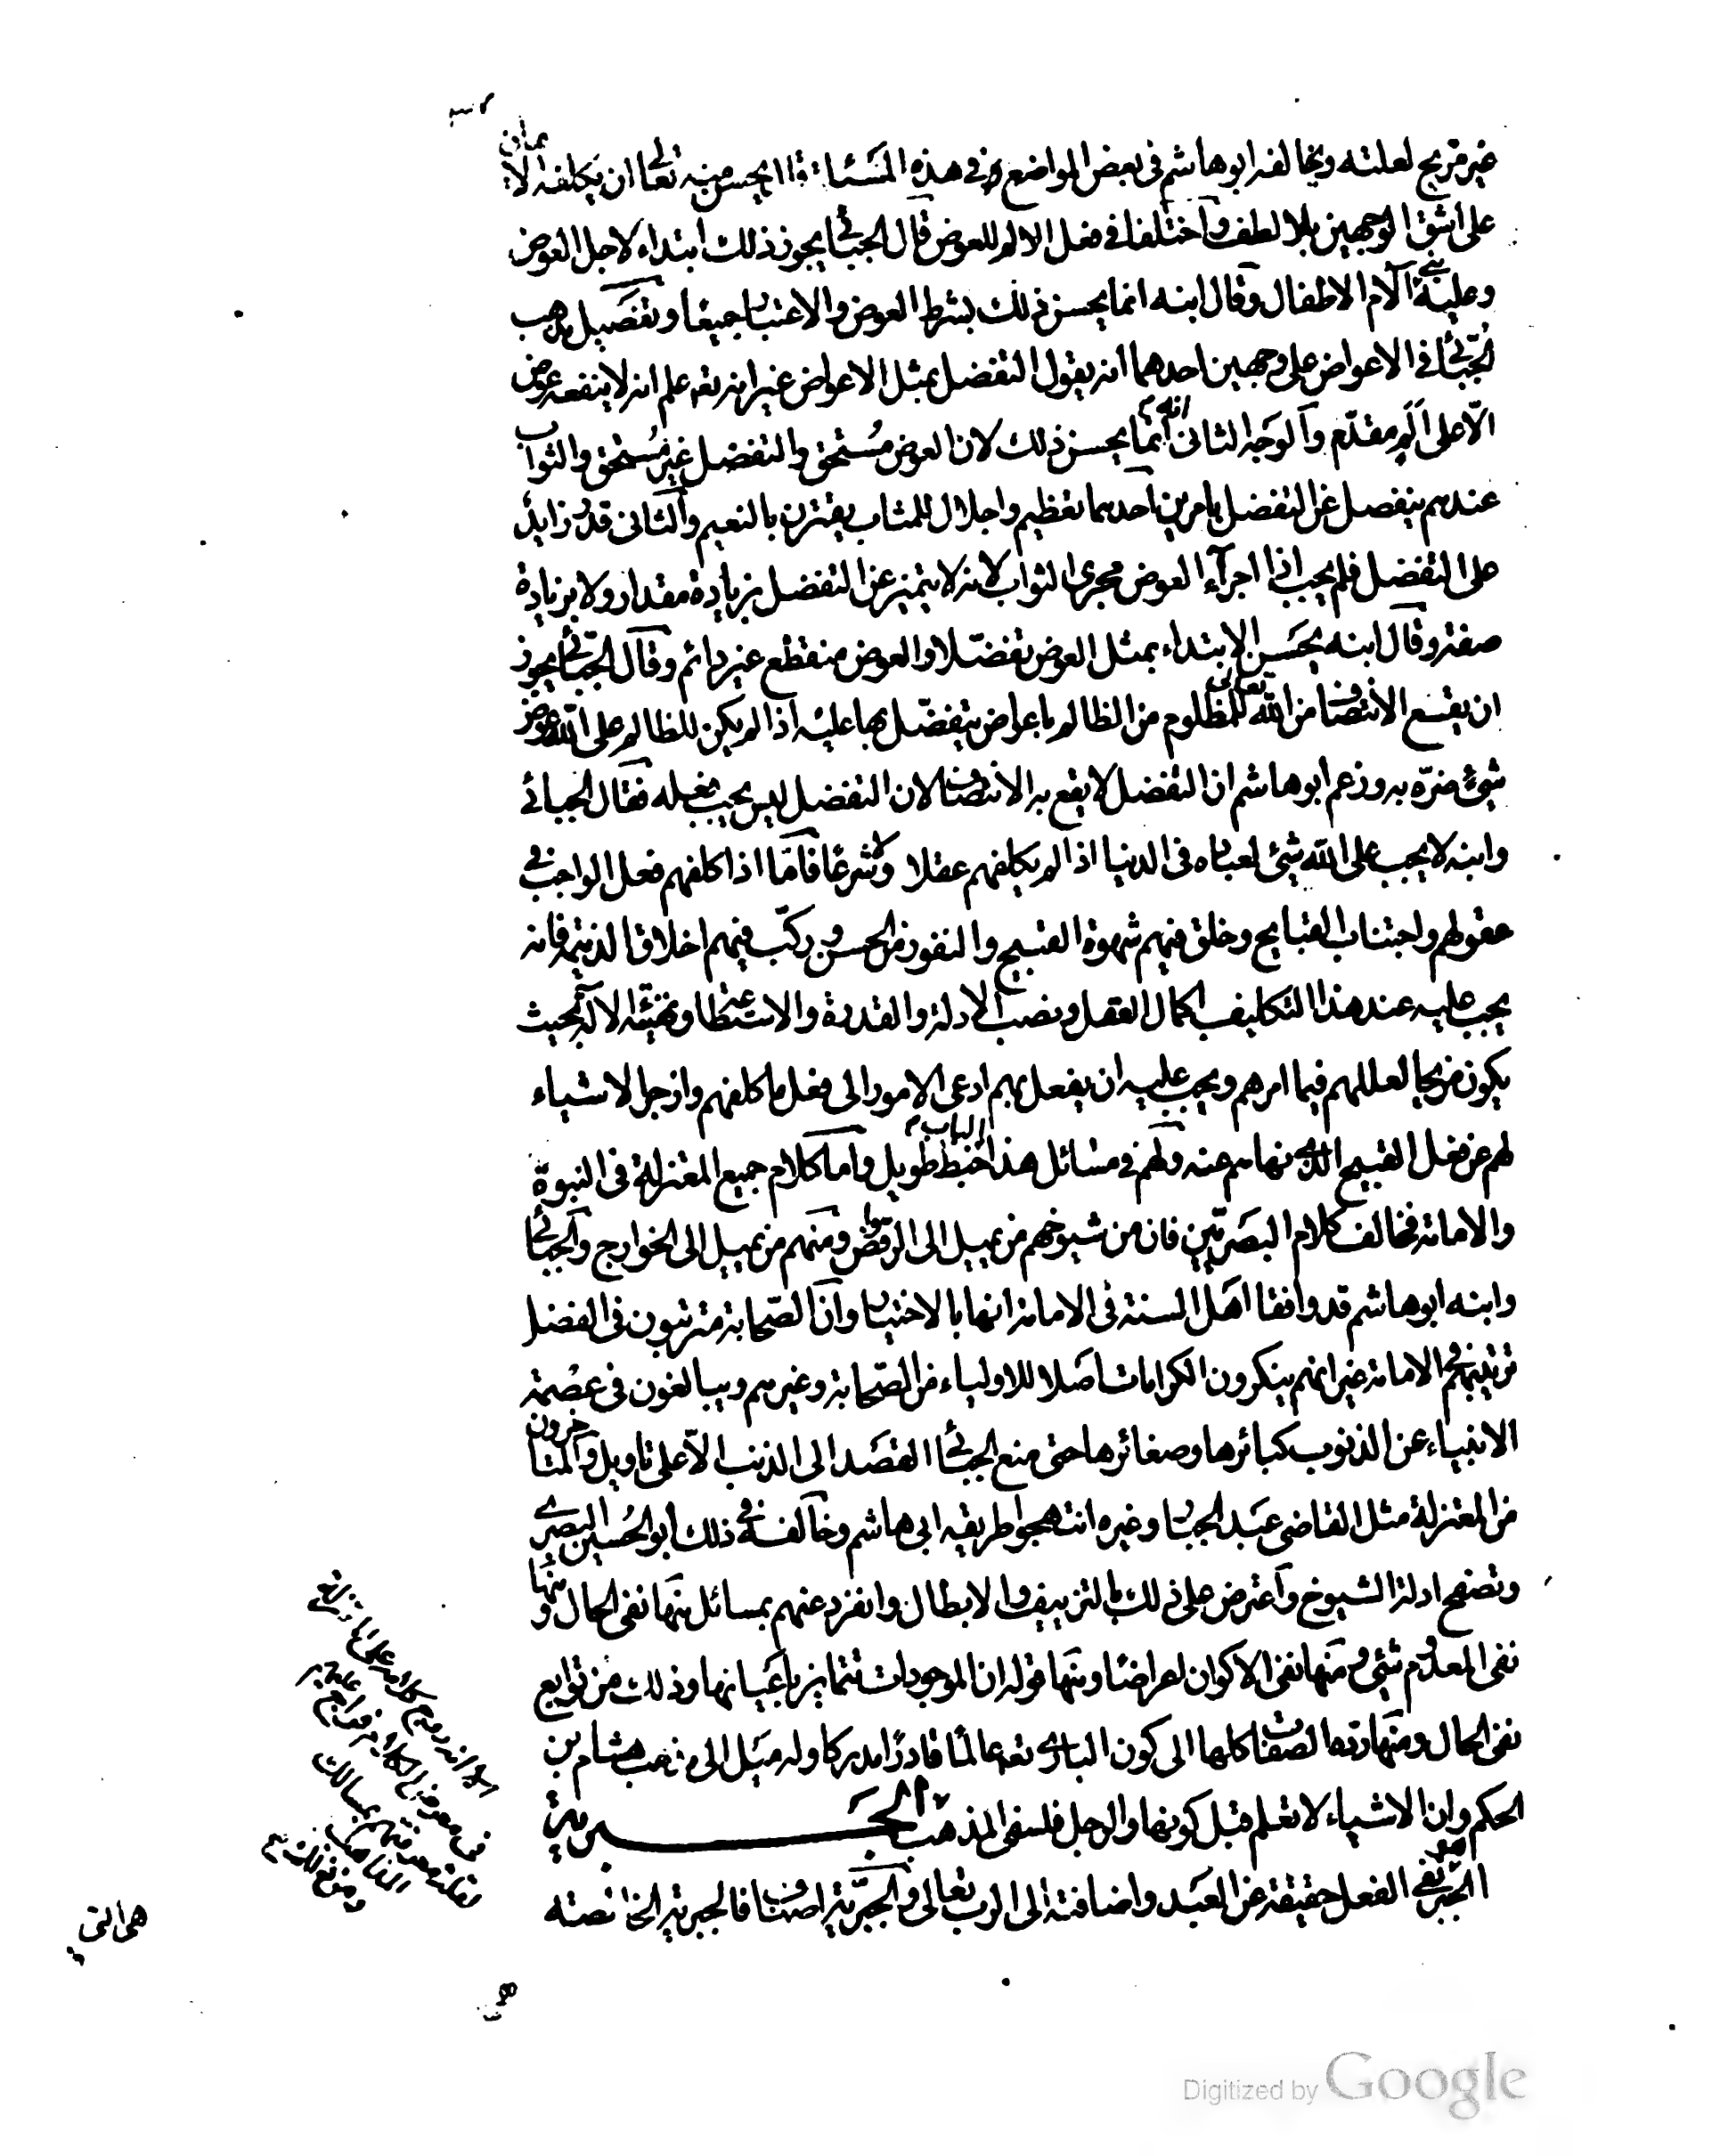 غير مزيح لعلته ويخالفه ابو هاشم فى بعض المواضع فى هذه المسئلة قال يحسن منه تعالى ان يكلفه الايمان
على اشق الوجهين بلا لطف واختلفا فى فعل الالم للعوض قال الجبائى يجوز ذلك ابتداء لاجل العوض
وعليه بنى آلام الاطفال وقال ابنه انما يحسن ذلك بشرط العوض والاعتبار جميعا وتفصيل مذهب
الجبائى فى الاعواض على وجهين احدهما انه يقول التفضل بمثل الاعواض غير انه تعـ علم انه لا ينفعه عوض
الا على الم مقدم والوجه الثانى انه انما يحسن ذلك لان العوض مستحق والتفضل غير مستحق والثواب
عندهم ينفصل عن التفضل بامرين احدهما تعظيم واجلال للمثاب يقترن بالنعيم والثانى قدر زايد
على التفضل فلم يجب اذا اجرآء العوض مجرى الثواب لانه لا يتميز عن التفضل بزيادة مقدار ولا بزيادة
صفة وقال ابنه يحسن الابتداء بمثل العوض تفضلا والعوض منقطع غير دائم وقال الجبائى يجوز
ان يقع الانتصاف من الله تعالى للمظلوم من الظالم باعواض يتفضل بها عليه اذا لم يكن للظالم على الله عوض
شئ ضره به وزعم ابو هاشم ان التفضل لا يقع به الانتصاف لان التفضل ليس يجب فعله فقال الجبائى
وابنه لا يجب على الله شئ لعباده فى الدنيا اذا لم يكلفهم عقلا ولا شرعا فاما اذا كلفهم فعل الواجب فى
عقولهم واجتناب القبايح وخلق فيهم شهوة القبيح والنفور من الحسن وركب فيهم اخلاق الذميمة فانه
يجب عليه عند هذا التكليف اكمال العقل ونصب الادلة والقدرة والاستطاعة وتهيئة الالة بحيث
يكون مزيحا لعللهم فيما امرهم ويجب عليه ان يفعل بهم ادعى الامور الى فعل ما كلفهم وازجر الاشياء
لهم عن فعل القبيح الذى نهاهم عنه ولهم فى مسائل هذا الباب خبط طويل واما كلام جميع المعتزلة فى النبوة
والامامة فخالف كلام البصريين فان من شيوخهم من يميل الى الروافض ومنهم من يميل الى الخوارج والجبائى
وابنه ابو هاشم قد وافقا اهل السنة فى الامامة انها بالاختيار وان الصحابة مترتبون فى الفضل
ترتيبهم فى الامامة غير انهم ينكرون الكرامات اصلا للاولياء من الصحابة وغيرهم ويبالغون فى عصمة
الانبياء عن الذنوب كبائرها وصغائرها حتى منع الجبائى القصد الى الذنب الا على تاويل والمتاخرون
من المعتزلة مثل القاضى عبد الجبار وغيره انتهجوا طريقه ابى هاشم وخالفه فى ذلك ابو الحسين البصرى
وتصفح ادلة الشيوخ واعترض على ذلك بالتزييف والابطال وانفرد عنهم بمسائل منها نفى الحال ومنها
نفى المعدوم شئ ومنها نفى الاكوان اعراضا ومنها قوله ان الموجودات تتمايز باعيانها وذلك من توابع
نفى الحال ومنها رده الصفات كلها الى كون البارى تعـ عالما قادرا مدركا وله ميل الى مذهب هشام بن
الحكم وان الاشياء لا تعلم قبل كونها والرجل فلسفى المذهب الجبرية
الجبر هو نفى الفعل حقيقة عن العبد واضافته الى الرب تعالى والجبرية اصناف فالجبرية الخالصة
هى التى